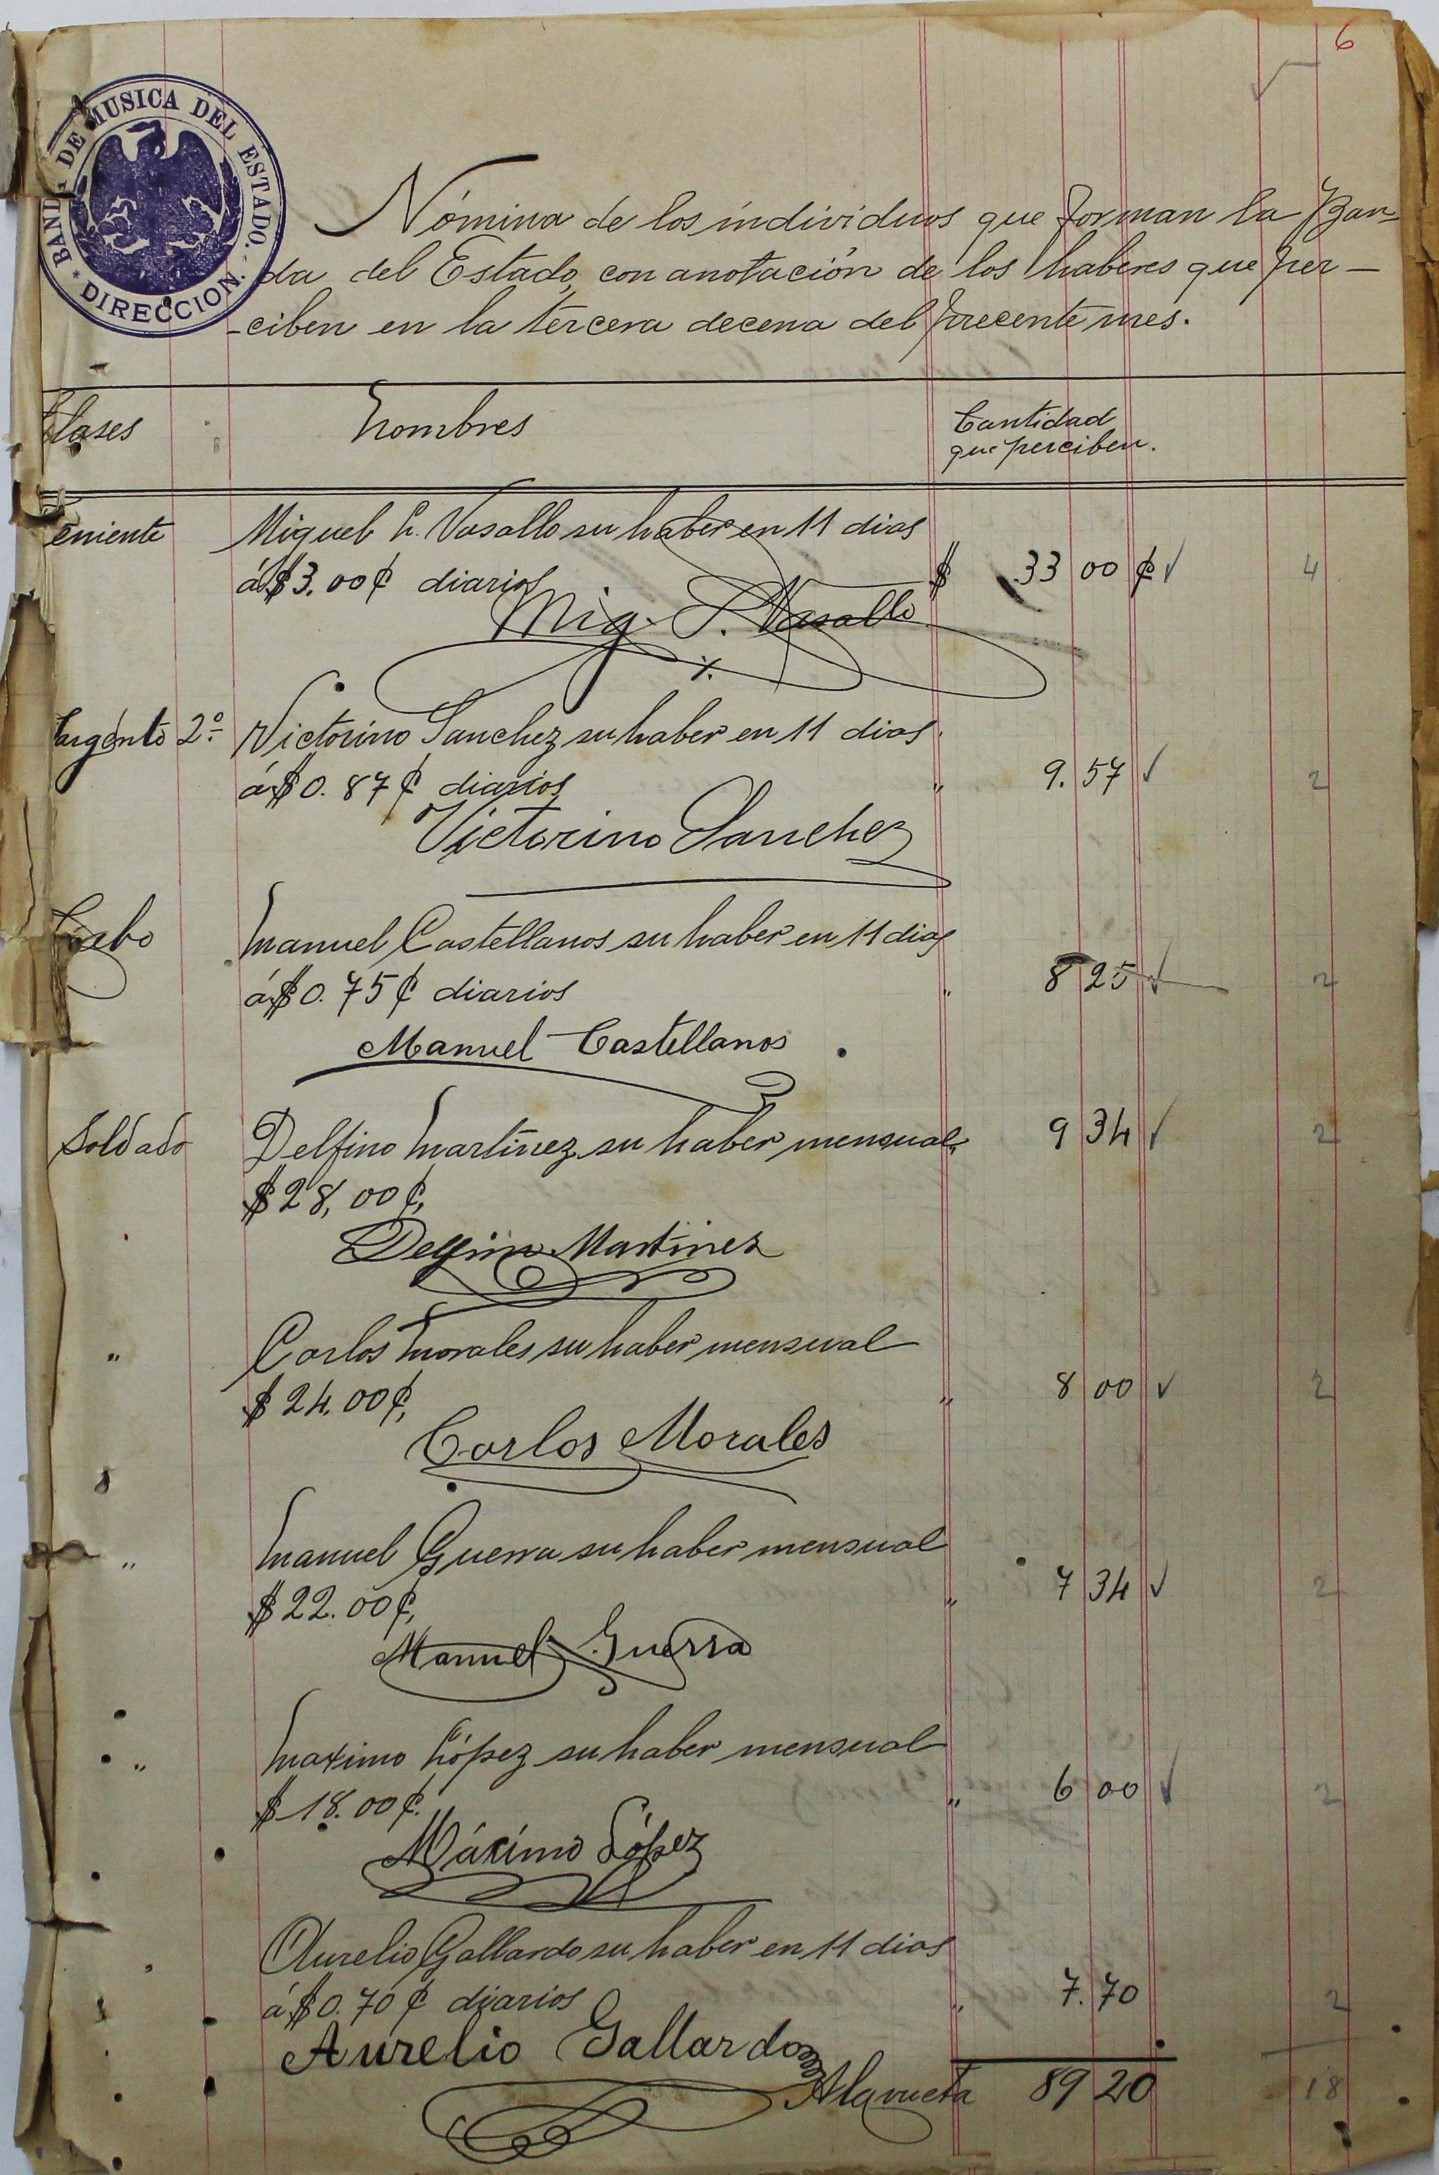 6
BANDA DE MUSICA DEL ESTADO.
* DIRECCION. *
Nómina de los individuos que forman la Ban-
da del Estado, con anotación de los haberes que per-
-ciben en la tercera decena del precente mes.
Clases Nombres Cantidad
que perciben.
Teniente Miguel L. Vasallo su haber en 11 dias
á $3.00 ¢ diarios $ 33 00 ¢ ✓ 4
Mig. L. Vasallo
Sargento 2º Victorino Sanchez su haber en 11 dias.
á $0.87 ¢ diarios " 9.57 ✓ 2
Victorino Sanchez
Cabo Manuel Castellanos su haber en 11 dias
á $0.75 ¢ diarios " 8 25 ✓ 2
Manuel Castellanos
Soldado Delfino Martinez su haber mensual 9 34 ✓ 2
$28,00 ¢,
Delfino Martinez
" Carlos Morales su haber mensual
$24.00 ¢, " 8 00 ✓ 2
Carlos Morales
" Manuel Guerra su haber mensual
$22.00 ¢, " 7 34 ✓ 2
Manuel Guerra
" Maximo López su haber mensual
$18.00 ¢. " 6 00 ✓ 2
Máximo López
Aurelio Gallardo su haber en 11 dias
á $0.70 ¢ diarios " 7.70 2
Aurelio Gallardo
A la vuelta 89 20 18